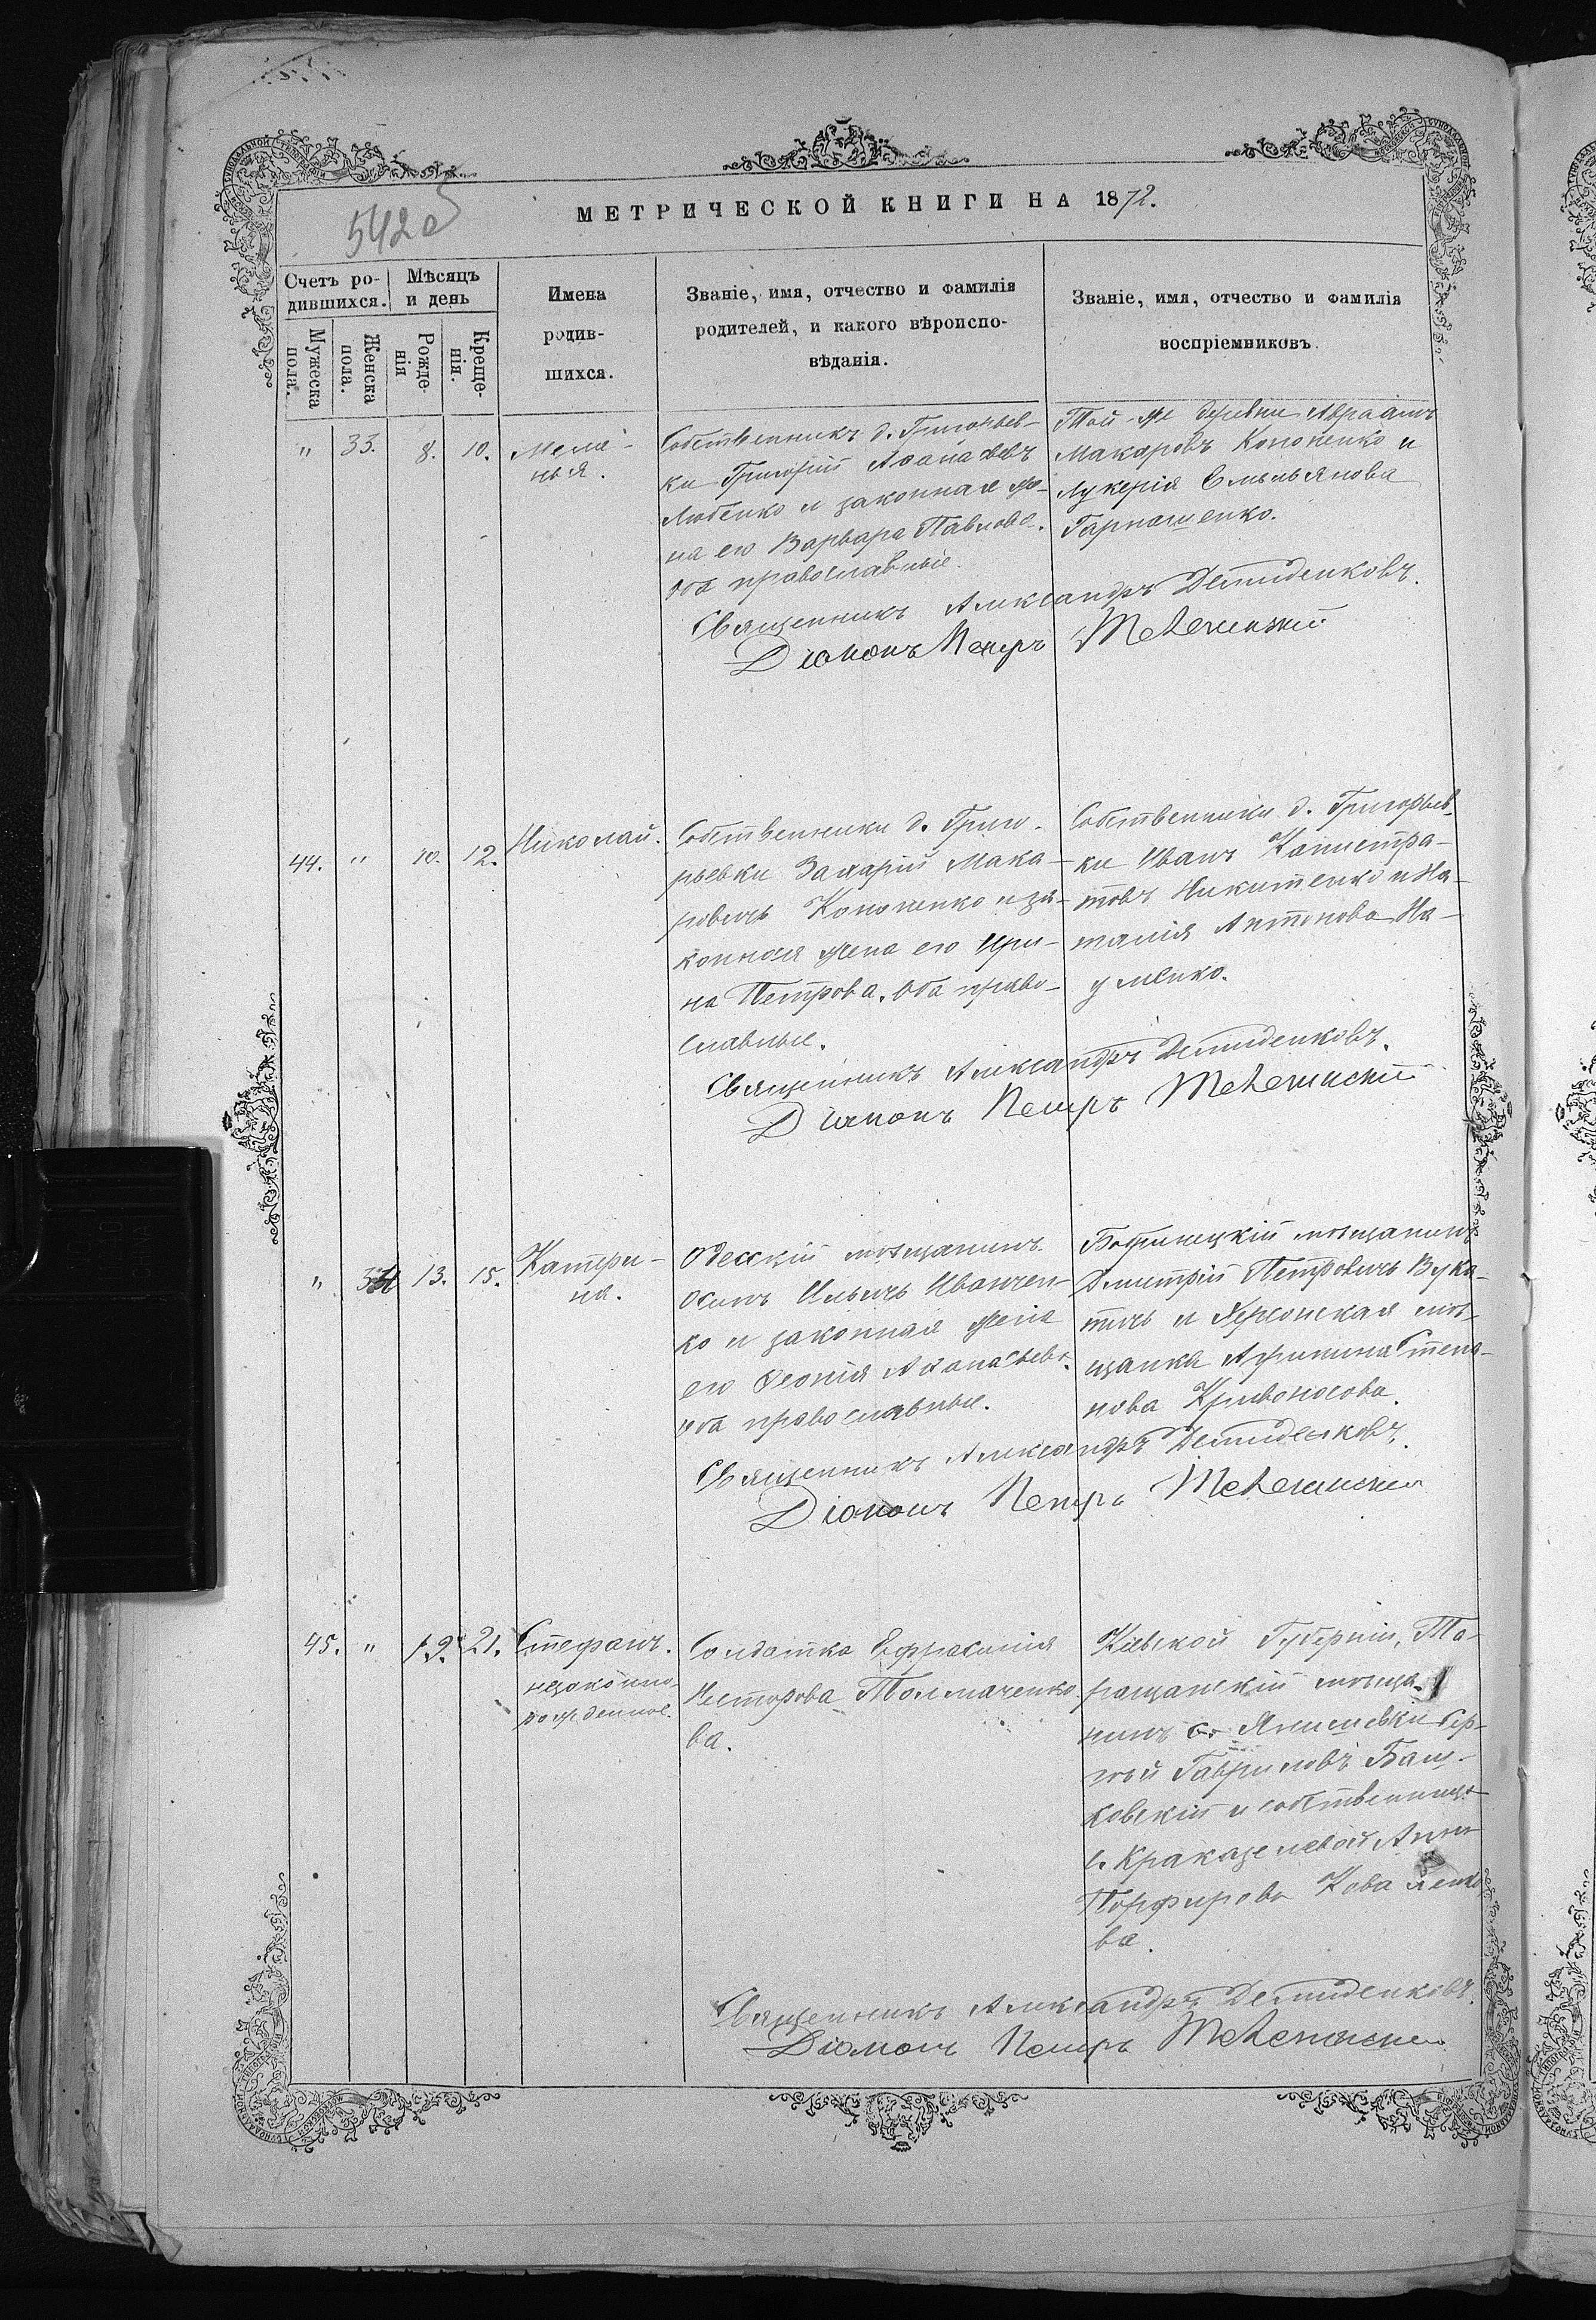 542 об
МЕТРИЧЕСКОЙ КНИГИ НА 1872.
Счетъ ро-
дившихся.
Мѣсяцъ
и день
Мужеска
пола.
Женска
пола.
Рожде-
нія
Креще-
нія.
Имена
родив-
шихся.
Званіе, имя, отчество и фамилія
родителей, и какого вѣроиспо-
вѣданія.
Званіе, имя, отчество и фамилія
воспріемниковъ.
" 33. 8. 10.
Мела-
нья.
Собственникъ д. Григорьев-
ки Григорій Аѳанасьевъ
Любенко и законная же-
на его Варвара Павлова.
Оба православные.
Той-же деревни Авраамъ
Макаровъ Кононенко и
Лукерія Емельянова
Гарнашенко.
Священникъ Александръ Демиденковъ.
Діаконъ Петръ
44. " 10. 12.
Николай.
Собственники д. Григо-
рьевки Захарій Мака-
ровичъ Кононенко и за-
конная жена его Ири-
на Петрова. Оба право-
славные.
Собственники д. Григорьев-
ки Иванъ Калистра-
товъ Никитенко и На-
талія Антонова На-
уменко.
Священникъ Александръ Демиденковъ.
Діаконъ Петръ
" 34 13. 15.
Катери-
на.
Одесскій мѣщанинъ
Осипъ Ильичъ Иванчен-
ко и законная жена
его Ѳеонія Аѳанасьева.
Оба православные.
Бобринецкій мѣщанинъ
Дмитрій Петровичъ Вука-
тичъ и Херсонская мѣ-
щанка Агрипина Степа-
нова Кривоносова.
Священникъ Александръ Демиденковъ.
Діаконъ Петръ
45. " 19. 21.
Стефанъ.
незаконно-
рожденное.
Солдатка Ефросинія
Несторова Толмаченко-
ва.
Кіевской Губерніи, Та-
ращанскій мѣща-
нинъ с. Янишевки Сер-
гѣй Гавриловъ Баш-
ковскій и собственница
с. Анна
Порфирова Коваленко-
ва.
Священникъ Александръ Демиденковъ.
Діаконъ Петръ